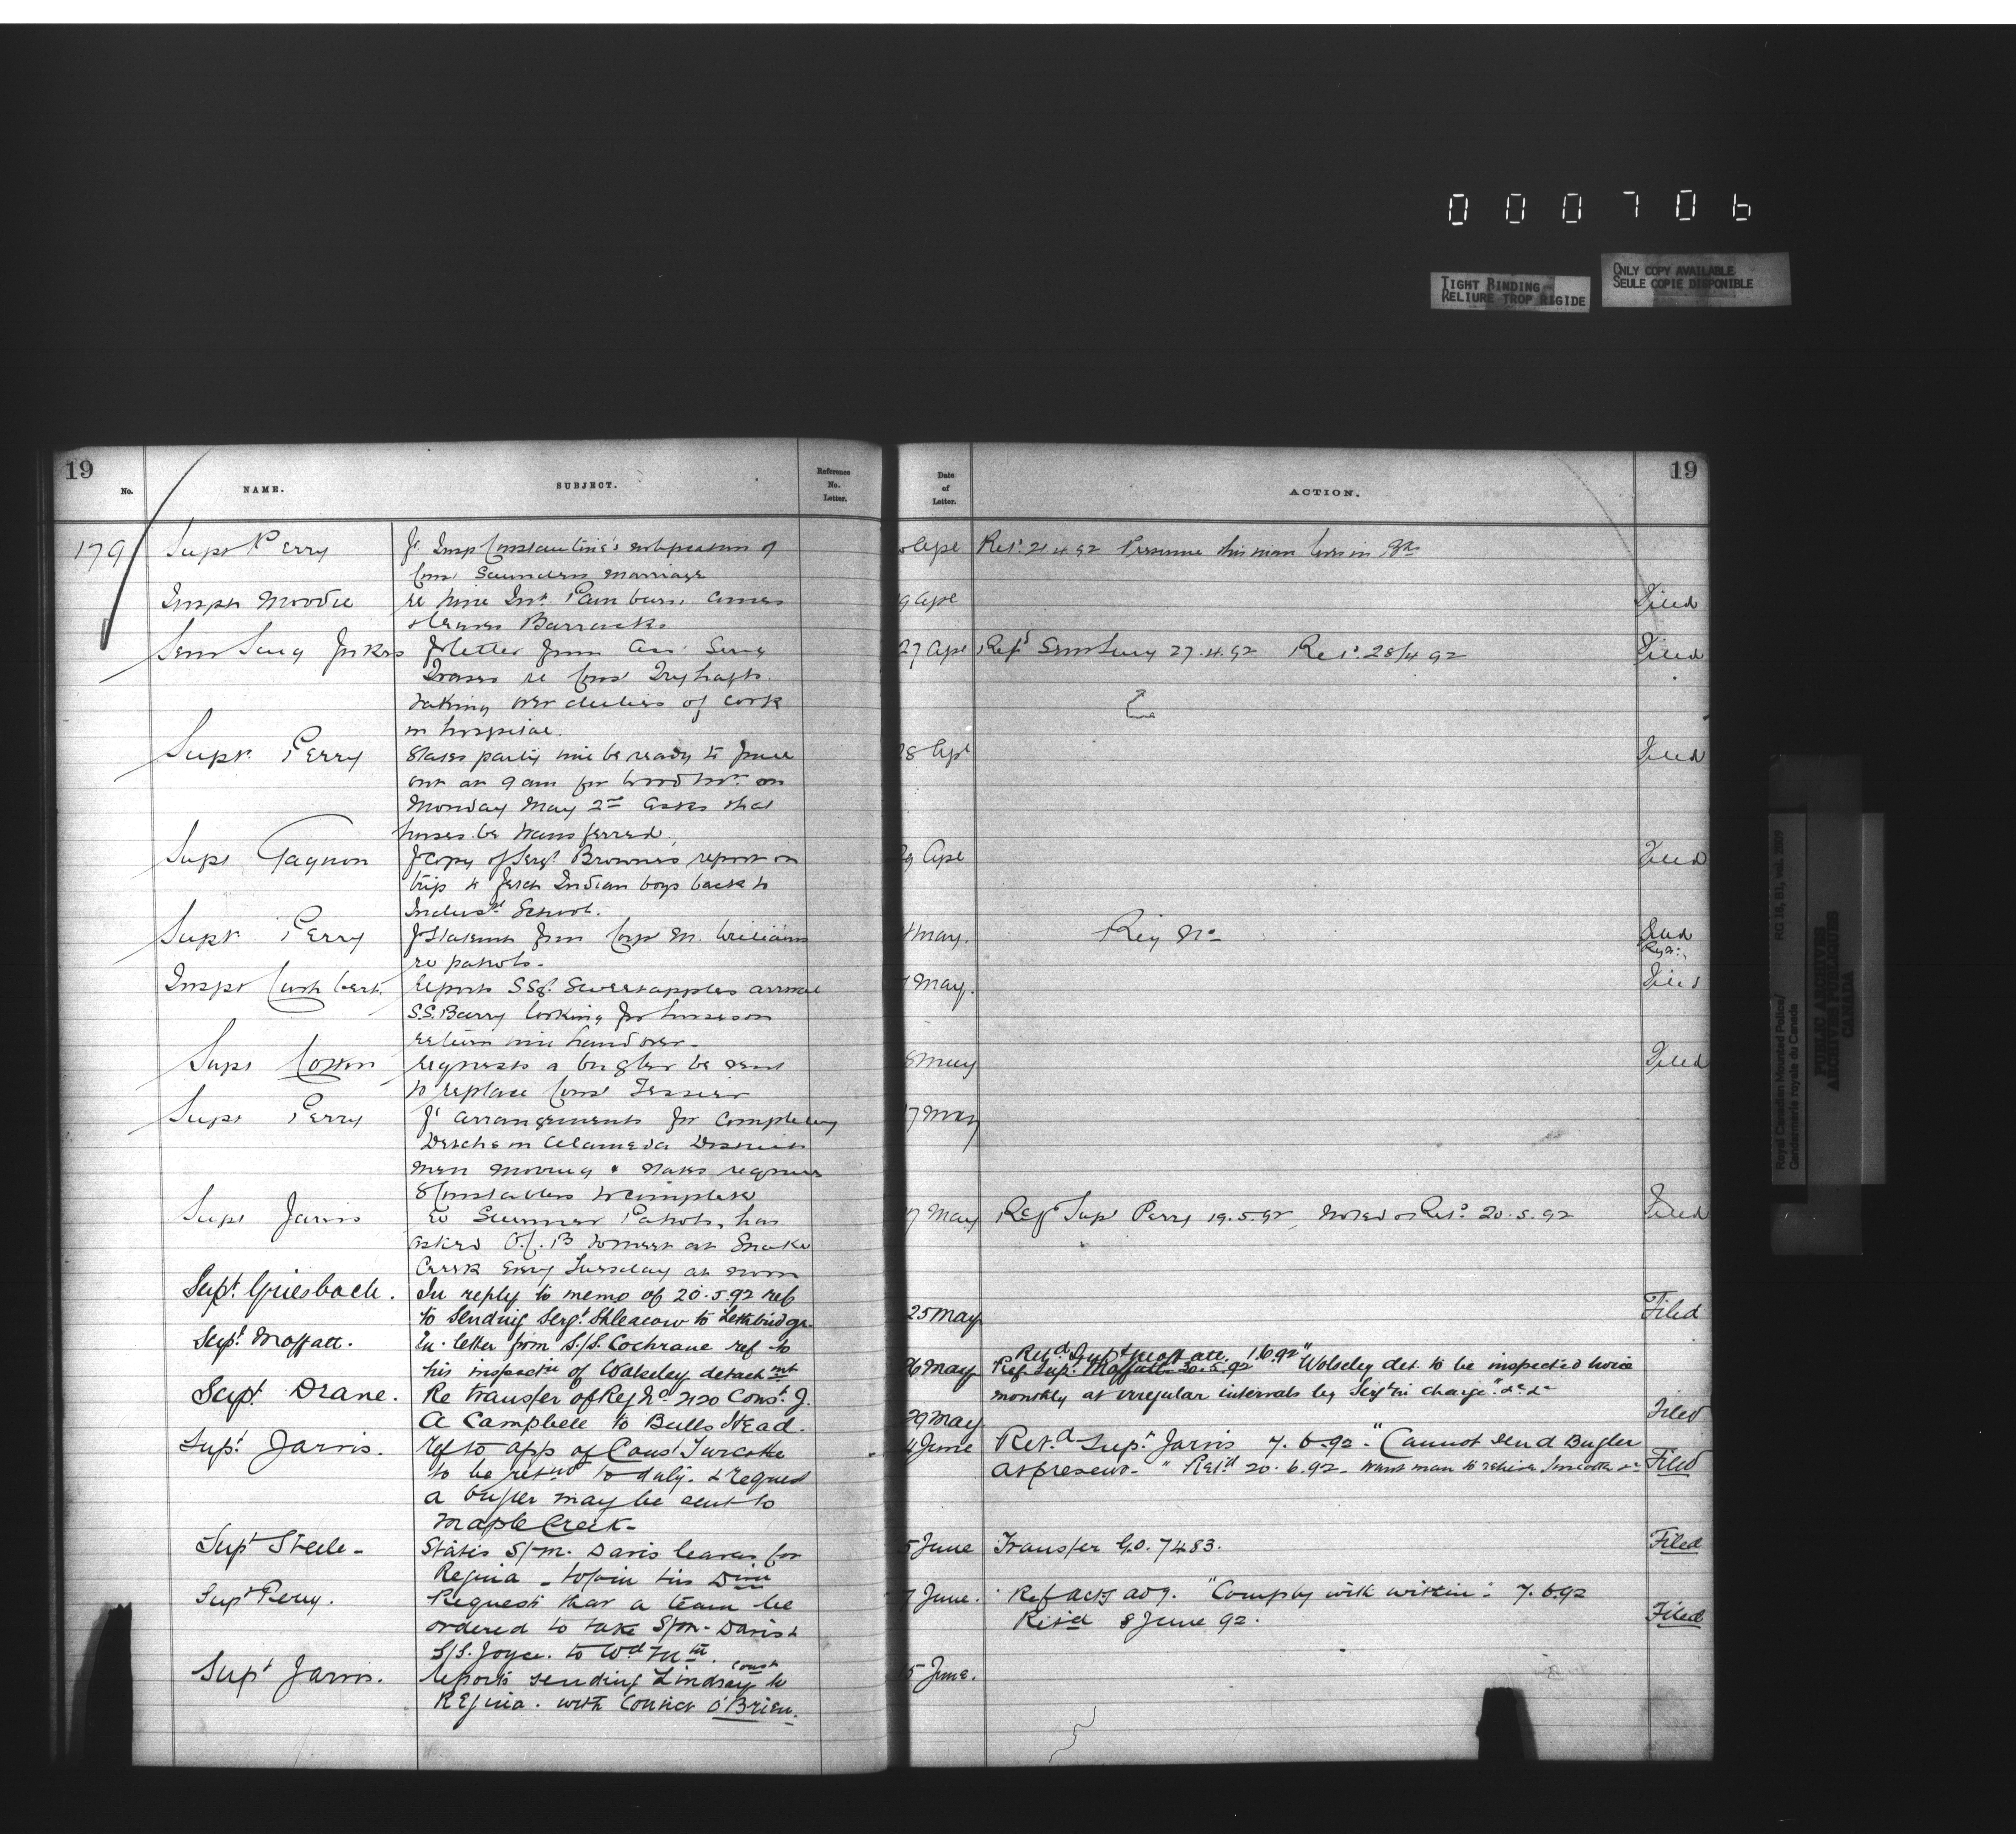 000706
TIGHT BINDING
RELIURE TROP RIGIDE
ONLY COPY AVAILABLE
SEULE COPIE DISPONIBLE
19
No.
NAME.
SUBJECT.
Reference
No.
Letter.
Date
of
Letter.
ACTION.
19
179
Supt Perry
Insp Constantine's
of
Cons Saunders marriage
Ape
Ret'd 21.4.92 Presume this man is in
Inspr Moodie
re
Barracks
9 Ape
Filed
letter from
re Const
taking over duties of cook
in hospital.
27 Ape
Refd 27.4.92 Retd 28/4 92
Filed
Supt. Perry
States party will be ready to
out at 9 am for Wood Mtn on
Monday May 2nd Asks that
horses be transferred.
28 Apl
Filed
Supt Gagnon
Copy of Sergt Brown's report on
trip to fetch Indian boys back to
Indust School.
29 Ape
Filed
Supt Perry
Statement from Corp M. Williams
re patrols.
May.
Reg No
Filed
Inspr Cuthbert
reports SSgt Sweetapples arrival
S.S. Barry looking for horses on
return will hand over.
7 May.
Filed
Supt Cotton
requests a bugler be sent
to replace Cons Tessier
8 May
Filed
Supt Perry
arrangements for completing
Detchs in Alameda District
men moving & states requires
8 Constables to complete
17 May
Supt Jarvis
re Summer Patrols, has
asked O.C. B to meet at Snake
Creek every Tuesday at noon
17 May
Ref Supt Perry 19.5.92, noted & Retd 20.5.92
Filed
Supt. Griesbach.
In reply to memo of 20.5.92 ref
to sending Sergt to Lethbridge.
25 May
Filed
Supt. Moffatt.
En. letter from S/S. Cochrane ref to
his inspectn of Wolseley detachmt
26 May
Retd Supt Moffatt. 1.6.92"
Ref. Supt. Moffatt 30.5.92 "Wolseley det. to be inspected twice
monthly at irregular intervals by Sergt in charge" &c &c
Supt. Drane.
Re transfer of Reg No. 2120 Const. J.
A Campbell to Bulls Head.
29 May
Filed
Supt. Jarvis.
ref to app of Const Turcotte
to be retnd to duty. & request
a bugler may be sent to
Maple Creek-
4 June
Ret.d Supt. Jarvis 7.6.92. "Cannot send Bugler
at present." Ret'd 20.6.92. Want man to relieve Turcotte &c
Filed
Supt Steele-
States S/M. Davis leaves for
Regina - to join his Divn
5 June
Transfer G.O. 7483.
Filed
Supt Perry.
Requests that a team be
ordered to take S/M. Davis &
S/S. Joyce. to Wd Mtn.
7 June.
Ref actg adj. "Comply with within". 7.6.92
Ret'd 8 June 92.
Filed
Supt Jarvis.
reports sending Const Lindsay to
Regina. with Convict O'Brien.
15 June.
Royal Canadian Mounted Police/
Gendarmerie royale du Canada
RG 18, B1, vol. 2009
PUBLIC ARCHIVES
ARCHIVES PUBLIQUES
CANADA